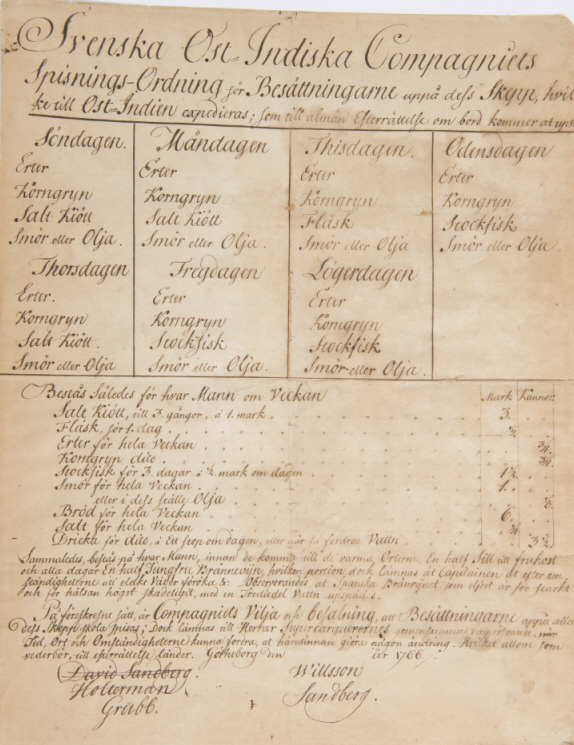 Svenska Ost-Indiska Compagniets
Spisnings-Ordning för Besättningarne uppå dess Skepp, hvil-
ke till Ost-Indien expedieras; som till almän Efterrättelse om bord kommer at
Söndagen. Måndagen Thisdagen. Odensdagen
Erter Erter Erter Erter
Korngryn Korngryn Korngryn Korngryn
Salt Kiött Salt Kiött Fläsk Stockfisk
Smör eller Olja. Smör eller Olja. Smör eller Olja Smör eller Olja.
Thorsdagen Fregdagen Lögerdagen
Erter. Erter Erter
Korngryn Korngryn Korngryn
Salt Kiött. Stockfisk Stockfisk
Smör eller Olja Smör eller Olja. Smör eller Olja.
Bestås Således för hvar Mann om Veckan Mark Kannor
Salt Kiött, till 3. gångor, á 1. mark. 3.
Fläsk, för 1. dag
Erter för hela Veckan
Korngryn dito
Stockfisk för 3. dagar á ½ mark om dagen 1½
Smör för hela Veckan 1.
eller i dess ställe Olja
Bröd för hela Veckan 6.
Salt för hela Veckan
Dricka för dito, á Ett stop om dagen, eller när så fordras Vattn 3½
Sammaledes, bestås på hvar Mann, innan de komma till de varma Orterne, En half Sill till frukost
och alla dagar En half Jungfru Brännevijn, hvilken portion dock lämnas at Capitainen at efter om-
ständigheterne och elakt Väder föröka, Observerandes at Spanska Brännvinet som eljest är för starkt
och för hälsan högst skadeligit, med en Tredjedel Vattn uppspädes.
På föreskrefne sätt, är Compagniets Vilja och befalning, att Besättningarne uppå alla
dess Skepp skola spisas; Dock lämnas till Herrar Supercargeurernes samsamma, när
Tid, Ort och Omständigheterne kunna fordra, at härdinnan göra någon ändring. allom som
vederbör, till efterrättelse länder. Götheborg den år 1766.
David Sandberg. Willsson
Holterman Sandberg.
Grubb.